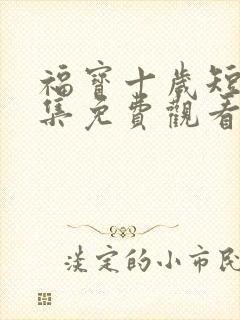 福寶十歲短
集免費觀看
淡定的小市民